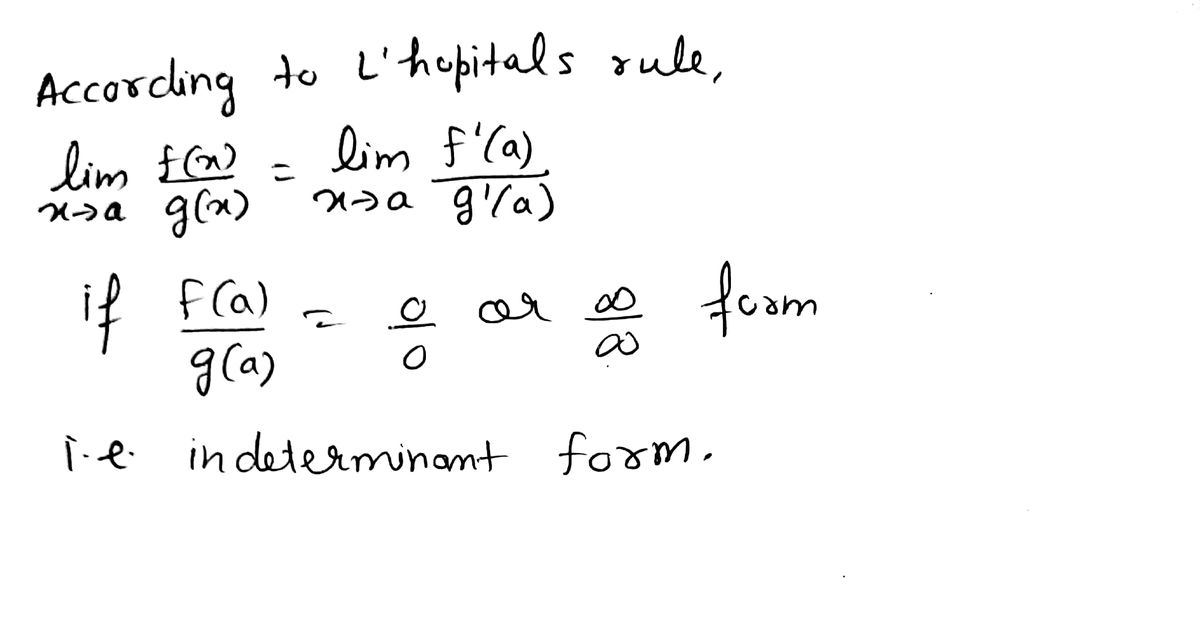 According to L'hopitals rule,
lim x→a f(x)/g(x) = lim x→a f'(a)/g'(a)
if f(a)/g(a) = 0/0 or ∞/∞ form
i.e. indeterminant form.